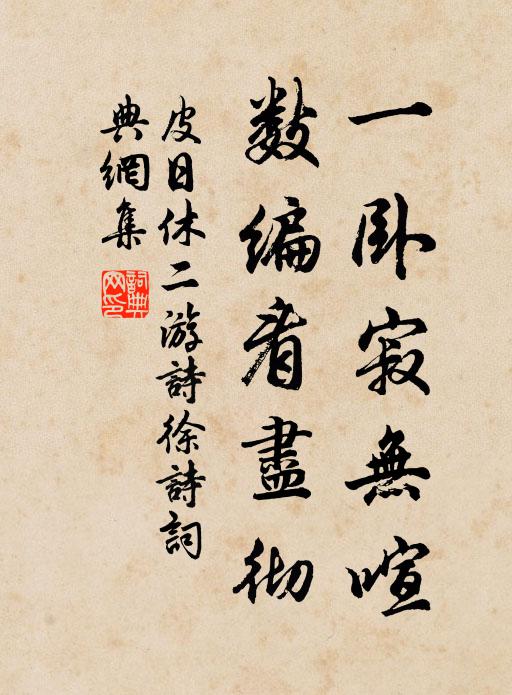 一卧寂無喧
數編看盡彻
皮日休二游詩徐詩詞
典網集
詞典网印